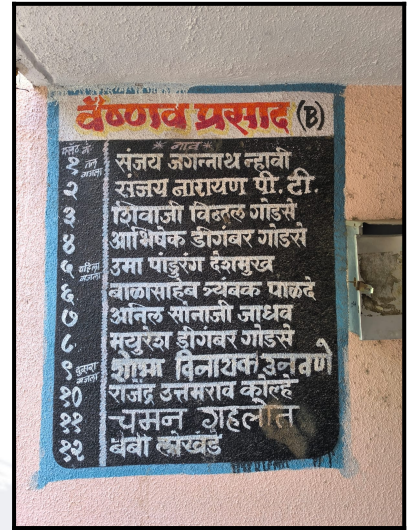 वैष्णव प्रसाद (B)
फ्लॅट नं. * नाव *
१ तळ मजला संजय जगन्नाथ न्हावी
२ संजय नारायण पी. टी.
३ शिवाजी विठ्ठल गोडसे
४ आभिषेक डीगंबर गोडसे
५ पहिला मजला उमा पांडुरंग देशमुख
६ बाळासाहेब त्र्यंबक पाळदे
७ अनिल सोनाजी जाधव
८ मयुरेश डीगंबर गोडसे
९ दुसरा मजला शोभा विनायक उनवणे
१० राजेंद्र उत्तमराव कोल्हे
११ चमन गहलोत
१२ बेबी लोखंडे